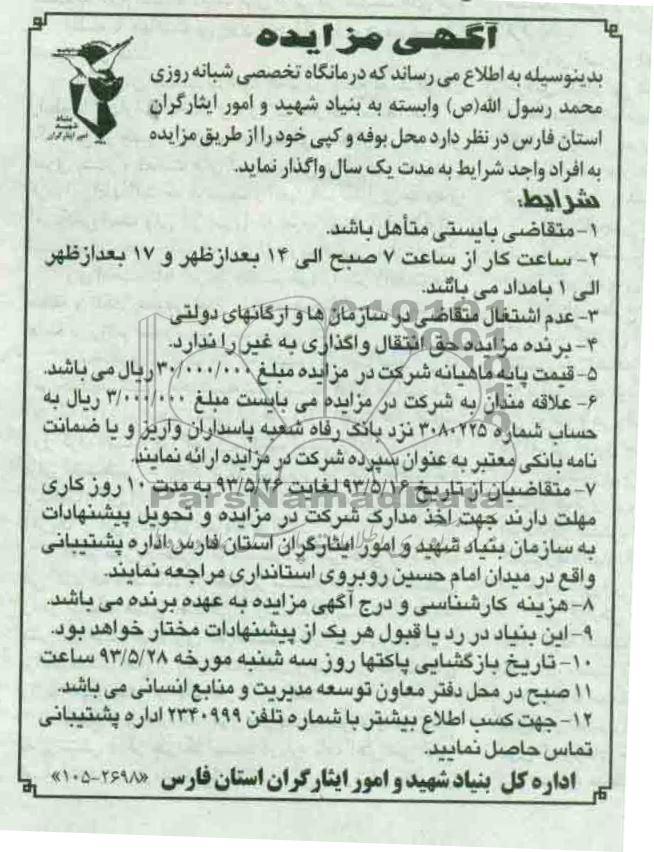 آگهی مزایده
بنیاد
شهید
امور ایثارگران
بدینوسیله به اطلاع می رساند که درمانگاه تخصصی شبانه روزی
محمد رسول الله(ص) وابسته به بنیاد شهید و امور ایثارگران
استان فارس در نظر دارد محل بوفه و کپی خود را از طریق مزایده
به افراد واجد شرایط به مدت یک سال واگذار نماید.
شرایط:
۱- متقاضی بایستی متأهل باشد.
۲- ساعت کار از ساعت ۷ صبح الی ۱۴ بعدازظهر و ۱۷ بعدازظهر
الی ۱ بامداد می باشد.
۳- عدم اشتغال متقاضی در سازمان ها و ارگانهای دولتی
۴- برنده مزایده حق انتقال واگذاری به غیر را ندارد.
۵- قیمت پایه ماهیانه شرکت در مزایده مبلغ ۳۰/۰۰۰/۰۰۰ ریال می باشد.
۶- علاقه مندان به شرکت در مزایده می بایست مبلغ ۳/۰۰۰/۰۰۰ ریال به
حساب شماره ۳۰۸۰۲۲۵ نزد بانک رفاه شعبه پاسداران واریز و یا ضمانت
نامه بانکی معتبر به عنوان سپرده شرکت در مزایده ارائه نمایند.
۷- متقاضیان از تاریخ ۹۳/۵/۱۶ لغایت ۹۳/۵/۲۶ به مدت ۱۰ روز کاری
ParsNamadData
مهلت دارند جهت اخذ مدارک شرکت در مزایده و تحویل پیشنهادات
به سازمان بنیاد شهید و امور ایثارگران استان فارس اداره پشتیبانی
واقع در میدان امام حسین روبروی استانداری مراجعه نمایند.
۸- هزینه کارشناسی و درج آگهی مزایده به عهده برنده می باشد.
۹- این بنیاد در رد یا قبول هر یک از پیشنهادات مختار خواهد بود.
۱۰- تاریخ بازگشایی پاکتها روز سه شنبه مورخه ۹۳/۵/۲۸ ساعت
۱۱ صبح در محل دفتر معاون توسعه مدیریت و منابع انسانی می باشد.
۱۲- جهت کسب اطلاع بیشتر با شماره تلفن ۲۳۴۰۹۹۹ اداره پشتیبانی
تماس حاصل نمایید.
اداره کل بنیاد شهید و امور ایثارگران استان فارس «۱۰۵-۲۶۹۸»